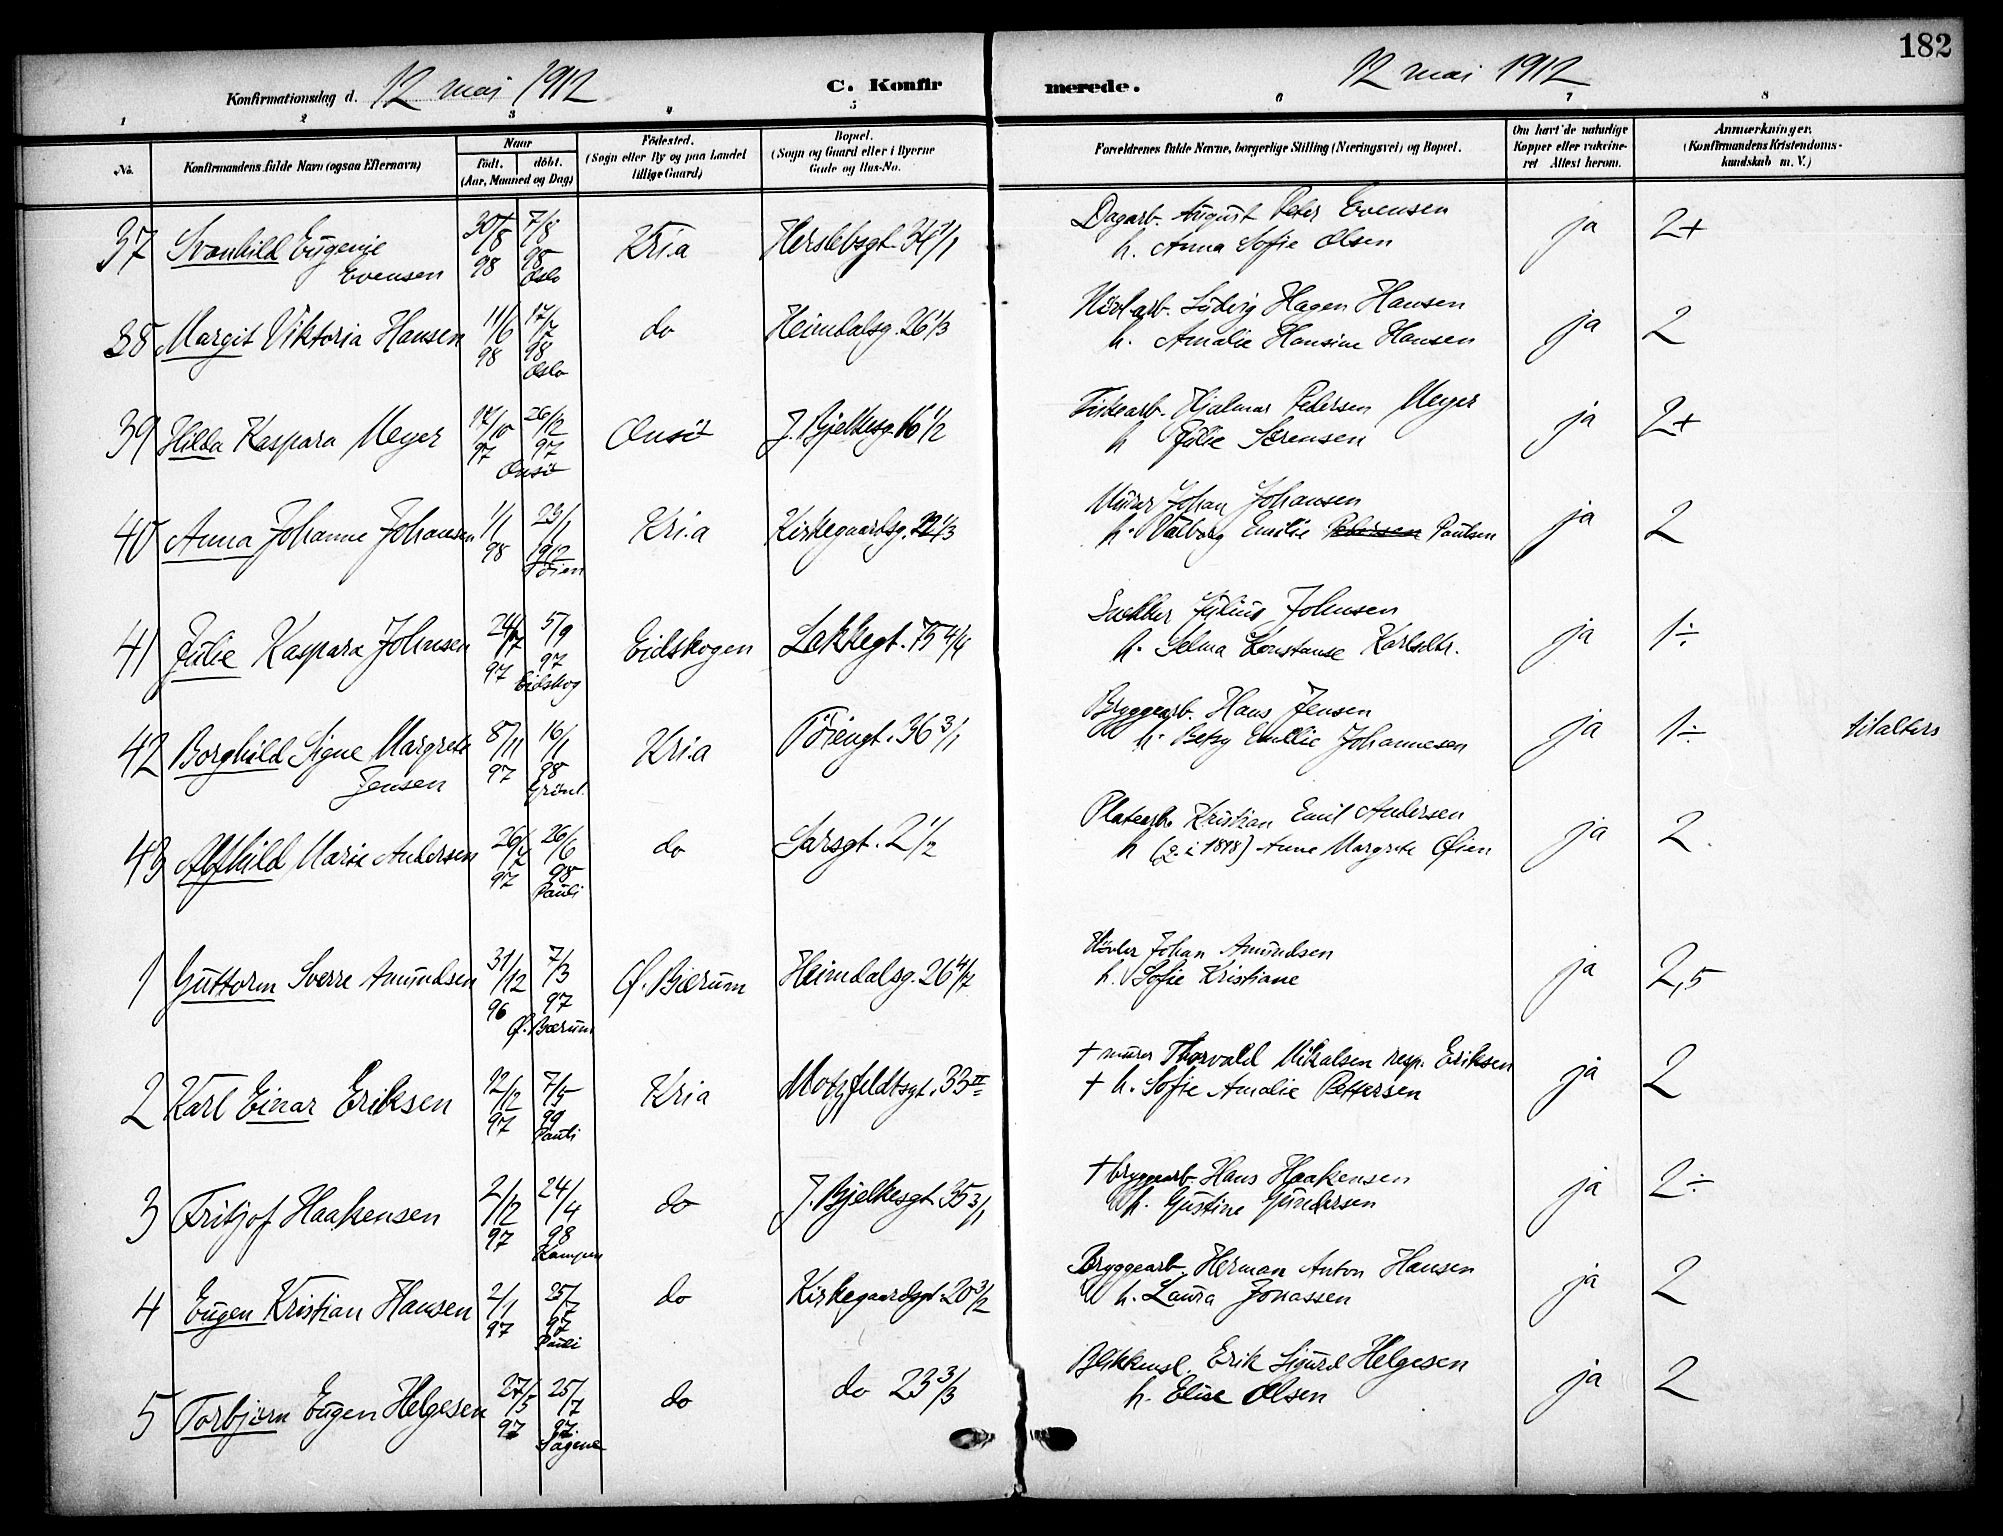 182
Konfirmationsdag d. 12 mai 1912 C. Konfir
merede. 12 mai 1912
1 2 3 4 5 6 7 8
No. Konfirmandens fulde Navn (ogsaa Efternavn)
Naar
født. døbt.
(Aar, Maaned og Dag)
Fødested.
(Sogn eller By og paa Landet
tillige Gaard)
Bopæl.
(Sogn og Gaard eller i Byerne
Gade og Hus-No.
Forældrenes fulde Navne, borgerlige Stilling (Næringsvei) og Bopæl.
Om havt de naturlige
Kopper eller vakcine-
ret Attest herom.
Anmærkninger.
(Konfirmandens Kristendoms-
kundskab m. V.)
37 Svanhild Eugenie Evensen 30/8 98 7/8 98 Oslo Kria Herslebsgt. 34 1/1
Dagarb. August Peter Evensen ja 2+
h. Anna Sofie Olsen
38 Margit Viktoria Hansen 11/6 98 17/7 98 Oslo do Heimdalsg. 26 1/3
Ludvig Hagen Hansen ja 2
h. Amalie Hansine Hansen
39 Hilda Kaspara Meyer 14/10 97 26/12 97 Onsö Onsö J. Bjelkesg. 16 1/2
Fiskearb. Hjalmar Pedersen Meyer ja 2+
h Julie Sørensen
40 Anna Johanne Johansen 1/1 98 23/1 1912 Töien Kria Kirkegaardsg. 22 1/3
Murer Johan Johansen ja 2
h. Valborg Emilie Pedersen Paulsen
41 Julie Kaspara Johnsen 24/7 97 5/9 97 Eidskog Eidskogen Lakkegt. 75 4/4
Snekker Julius Johnsen ja 1÷
h. Selma Konstanse Karlsdtr.
42 Borghild Signe Margrete Jensen 8/11 97 16/1 98 Grönl. Kria Töiengt. 36 3/1
Bryggearb. Hans Jensen ja 1÷ tilalters
h. Betzy Emilie Johannesen
43 Alfhild Marie Andersen 26/7 97 26/6 98 Pauli do Sarsgt. 2 1/2
Platearb. Kristian Emil Andersen ja 2
h Anne Margrete Øien
1 Guttorm Sverre Amundsen 31/12 96 7/3 97 Ø. Bærum Ø. Bærum Heimdalsg. 26 4/7
Høvler Johan Amundsen ja 2,5
h. Sofie Kristiane
2 Karl Einar Eriksen 12/12 97 7/5 99 Pauli Kria Motzfeldtsgt. 33 II
† murer Thorvald Mikalsen resp. Eriksen ja 2
† h. Sofie Amalie Pettersen
3 Fritjof Haakensen 2/12 97 24/4 98 Kampen do J. Bjelkesgt. 35 3/1
† bryggearb. Hans Haakensen ja 2÷
h. Gustine Gundersen
4 Eugen Kristian Hansen 2/1 97 25/7 97 Pauli do Kirkegaardsgt. 20 3/2
Bryggearb. Herman Anton Hansen ja 2
h. Laura Jonassen
5 Torbjørn Eugen Helgesen 27/5 97 25/7 97 Sagene do do 23 3/3
Blikkensl. Erik Sigurd Helgesen ja 2
h. Elise Olsen